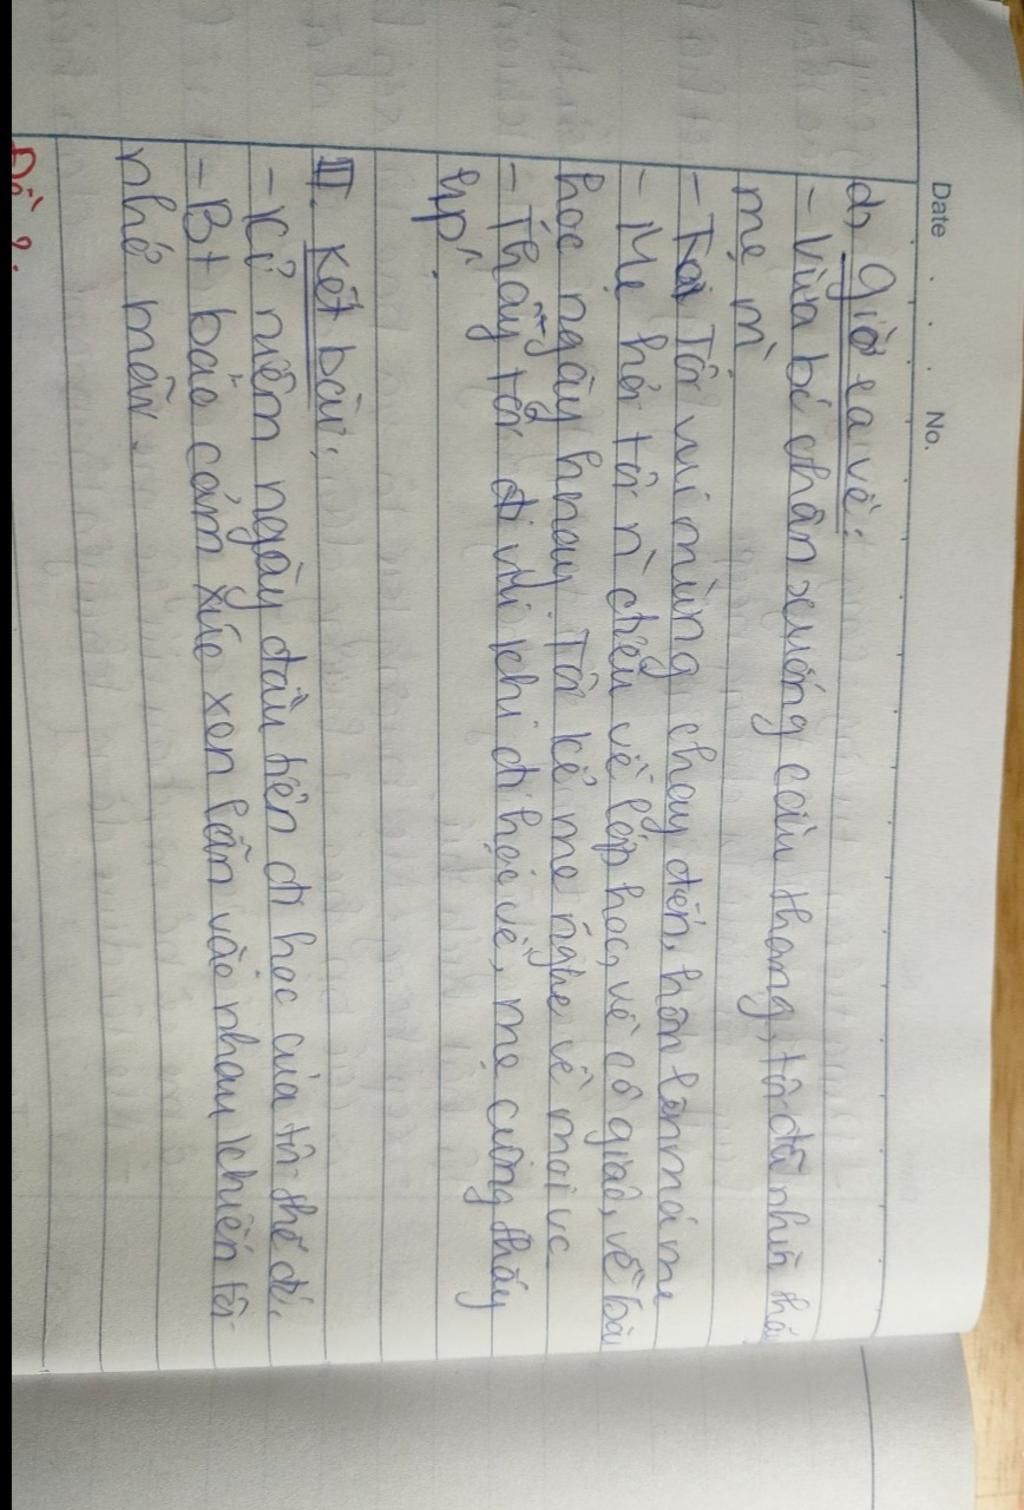 Date No.
d, Giờ ra về:
- Vừa bć chân xuống cầu thang, tôi đã nhìn thấ
mẹ m`
- Tôi vui mừng chạy đến, hôn lên má mẹ
- Mẹ hỏi tôi n` chiều về lớp học, về cô giáo, về bài
học ngày hnay. Tôi kể mẹ nghe về mọi vc
- Thấy tôi đi vui khi đi học về, mẹ cũng thấy
III. Kết bài:
- Kỉ niệm ngày đầu tiên đi học của tôi thế đó.
- Bt bao cảm xúc xen lẫn vào nhau khiến tôi
nhớ mãi.
Đề 2: